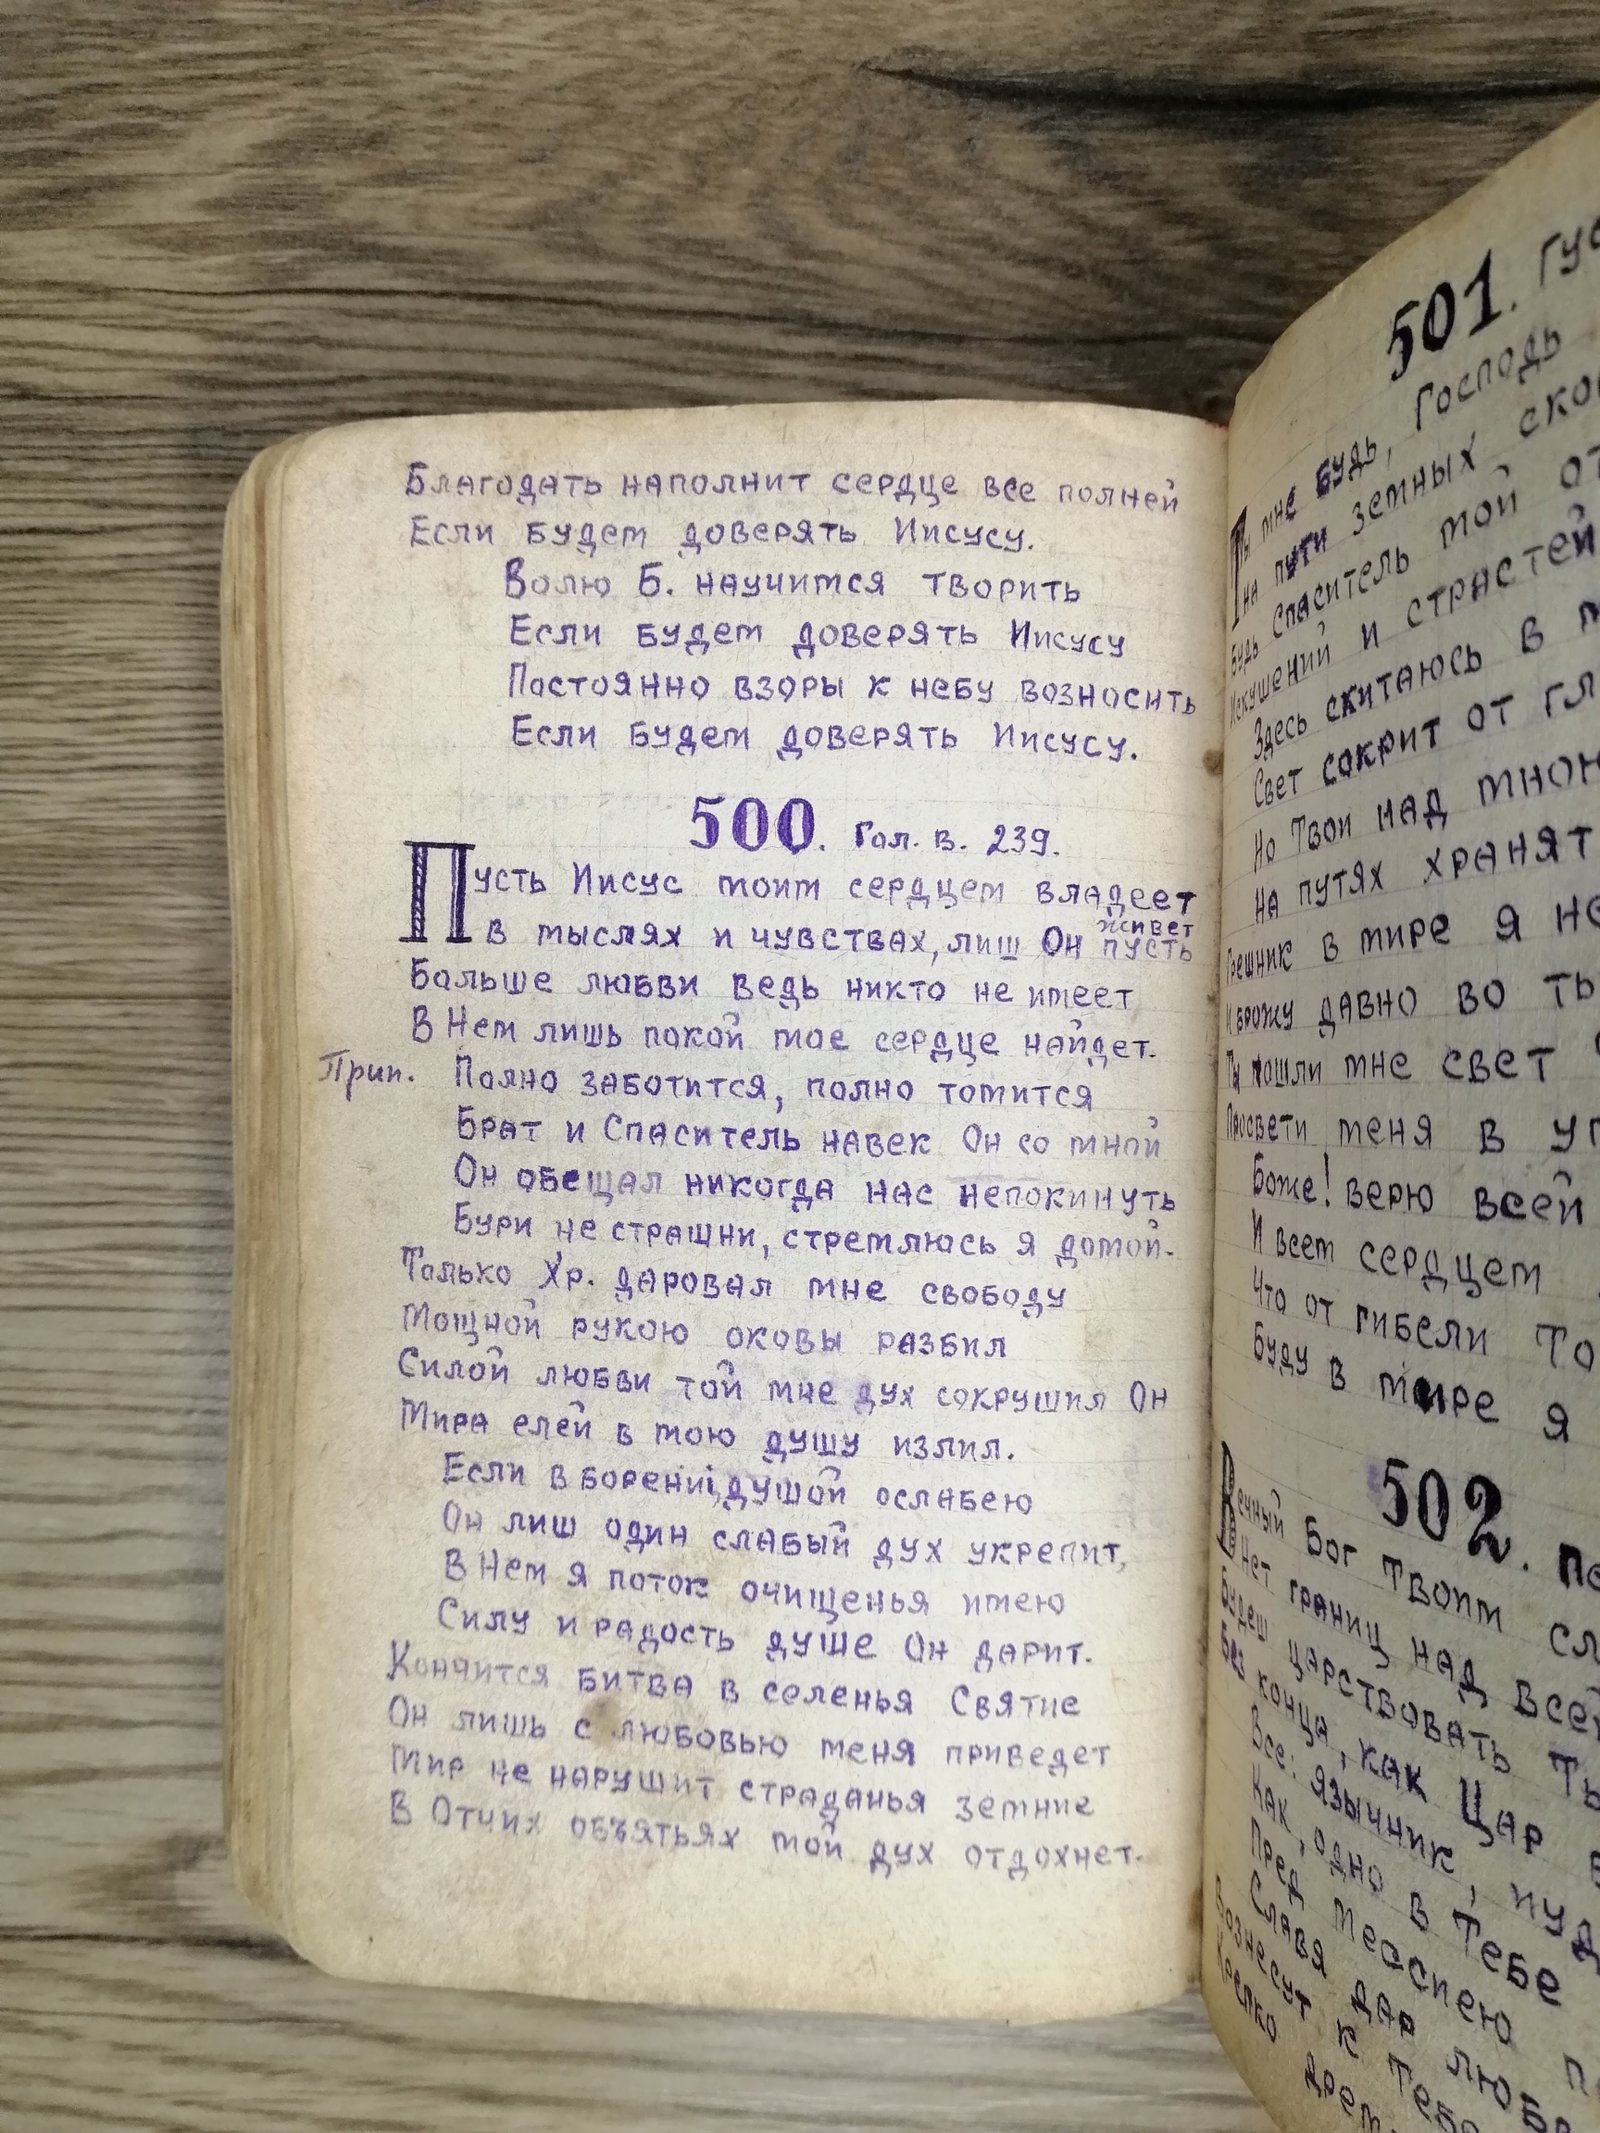 Благодать наполнит сердце все полней
Если будем доверять Иисусу.
Волю Б. научимся творить
Если будем доверять Иисусу
Постоянно взоры к небу возносить
Если будем доверять Иисусу.
500. Гол. в. 239.
Пусть Иисус моим сердцем владеет
живет
в мыслях и чувствах, лиш Он пусть
Больше любви ведь никто не имеет
В Нем лишь покой мое сердце найдет.
Прип. Полно заботится, полно томится
Брат и Спаситель навек Он со мной
Он обещал никогда нас непокинуть
Бури не страшни, стремлюсь я домой.
Только Хр. даровал мне свободу
Мощной рукою оковы разбил
Силой любви той мне дух сокрушил Он
Мира елей в мою душу излил.
Если в борении, душой ослабею
Он лиш один слабый дух укрепит,
В Нем я поток очищенья имею
Силу и радость душе Он дарит.
Кончится битва в селенья Святие
Он лишь с любовью меня приведет
Мир не нарушит страданья земние
В Отчих объятьях мой дух отдохнет.
501. Гус
Ты мне будь, Господь
на пути земных ско
Будь Спаситель мой от
Искушений и страстей
Здесь скитаюсь в м
Свет сокрит от гл
Но Твои над мною
На путях хранят
Грешник в мире я не
И брожу давно во ть
Ты пошли мне свет
Просвети меня в уп
Боже! верю всей
И всем сердцем
Что от гибели То
Буду в мире я
502. Пе
Вечный Бог Твоим сл
Нет границ над всей
Будеш царствовать Ты
Без конца, как Цар в
Все: язычник, иуд
Как одно в Тебе
Пред Мессиею п
Славя дар любв
Вознесут к Тебе
Крепко